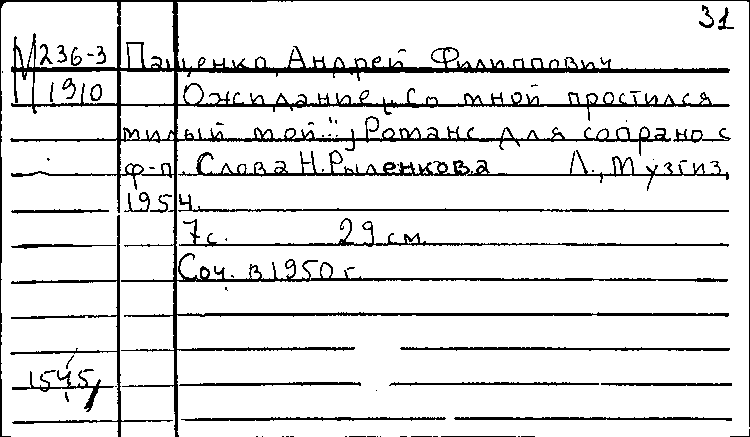 31
М 236-3 Пащенко, Андрей Филиппович
1910 Ожидание „Со мной простился
милый мой", Романс для сопрано с
ф-п. Слова Н. Рыленкова Л., Музгиз,
1954.
7 с. 29 см.
Соч. в 1950 г.
1545